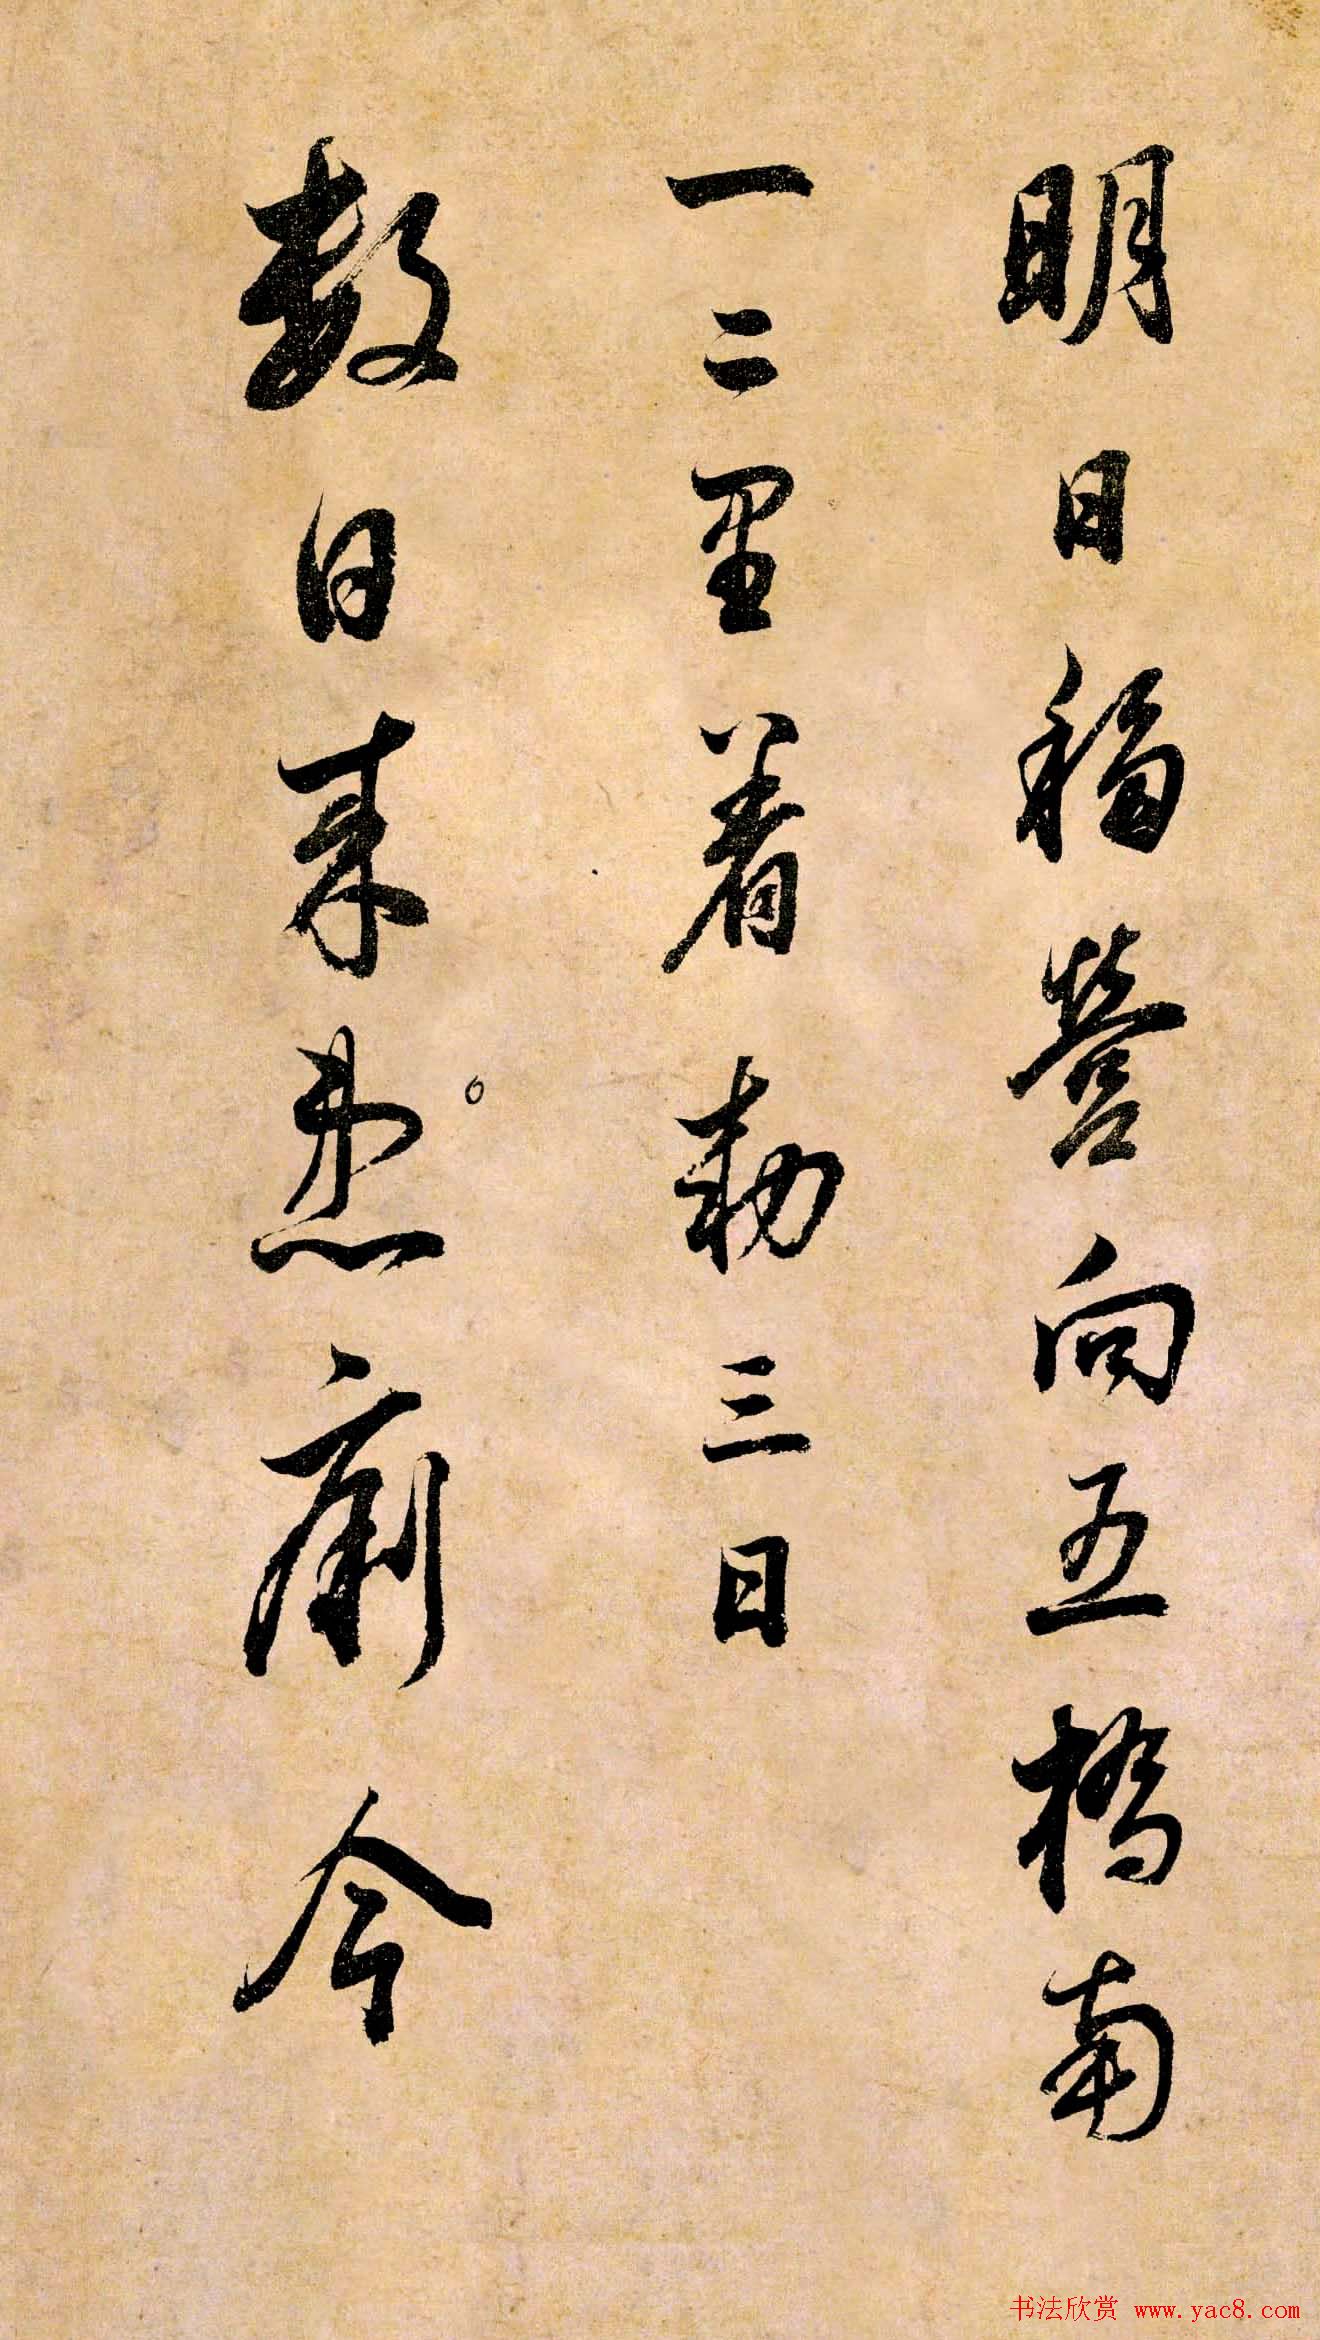 明日移營向五橋南
一二里著勅三日
數日来患痢今
书法欣赏 www.yac8.com